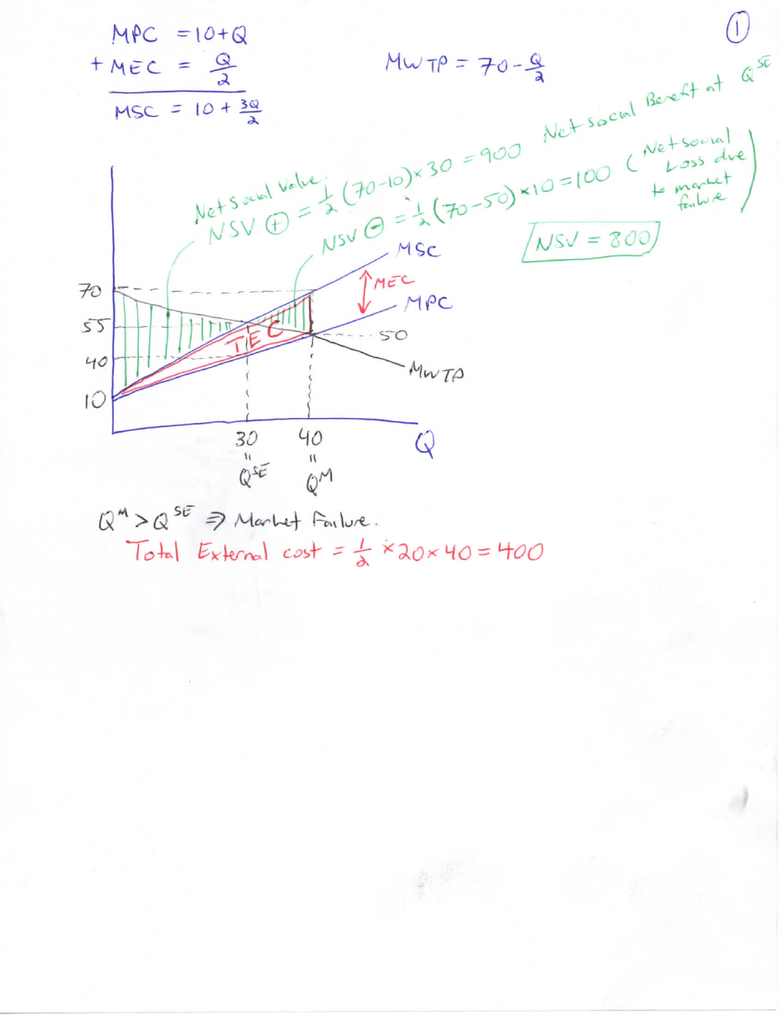 ①
MPC = 10+Q
+ MEC = Q/2
MSC = 10 + 3Q/2
MWTP = 70 - Q/2
Net Social Value
NSV ⊕ = 1/2 (70-10)×30 = 900 Net social Benefit at Q^SE
NSV ⊖ = 1/2 (70-50)×10 = 100 (Net social Loss due to market failure)
NSV = 800
MSC
MEC
MPC
70
55
TEC
50
40
MWTP
10
30 40 Q
" "
Q^SE Q^M
Q^M > Q^SE ⇒ Market Failure.
Total External cost = 1/2 × 20 × 40 = 400